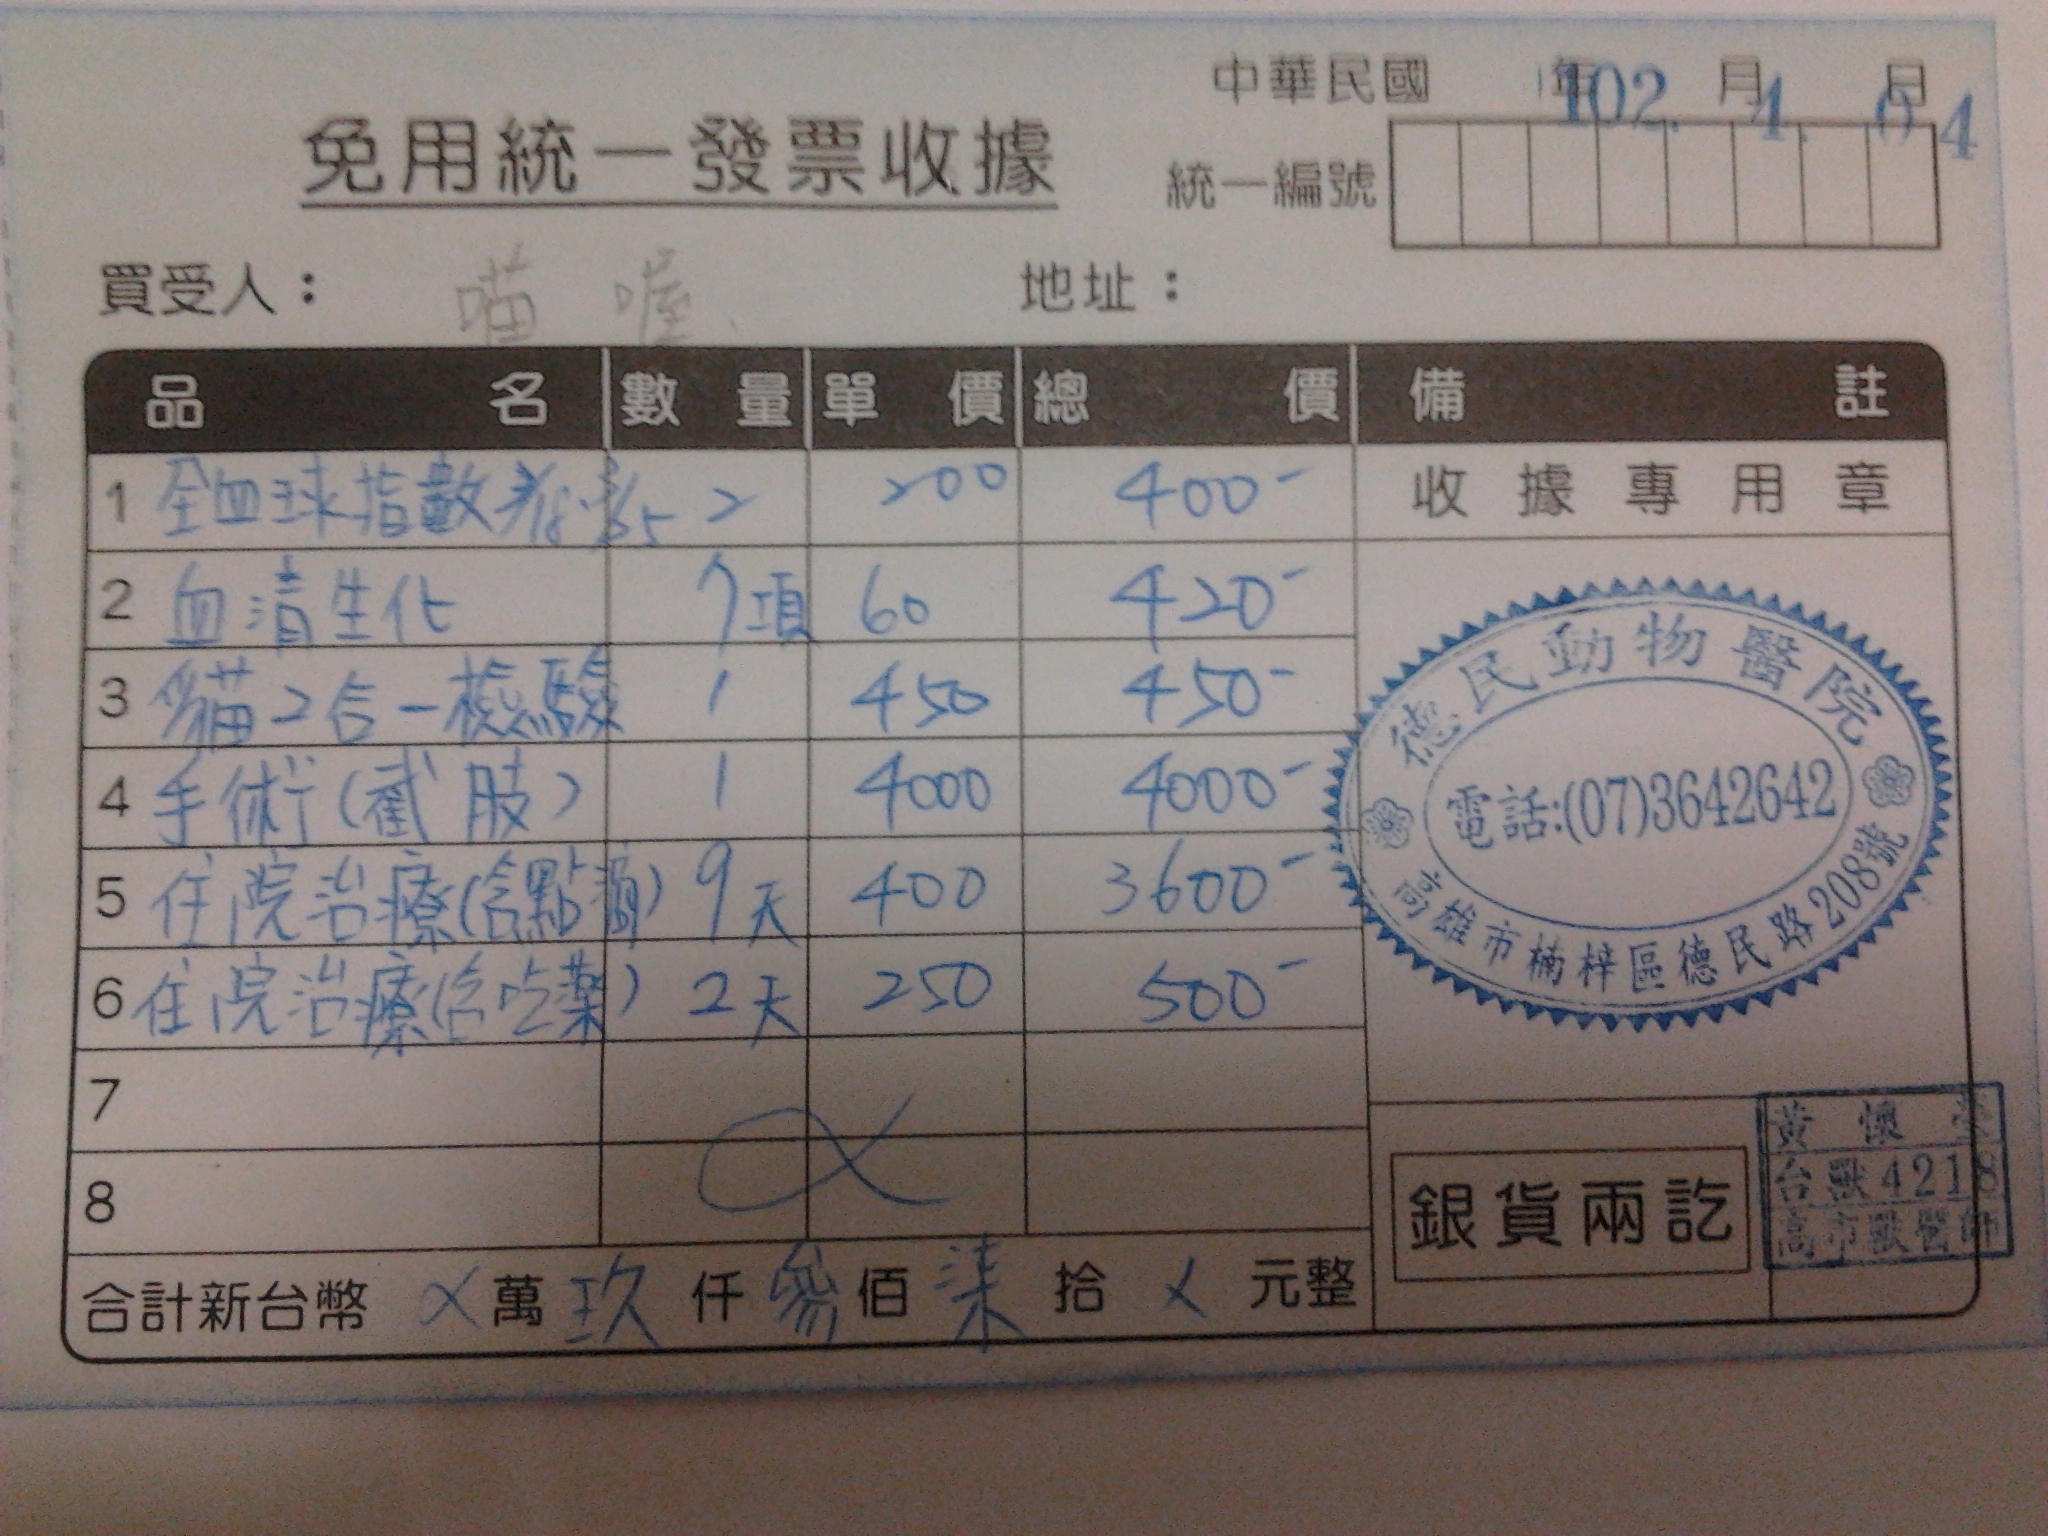 中華民國 年 月 日
102. 4. 04
免用統一發票收據
統一編號
買受人： 喵喔 地址：
品名 數量 單價 總價 備註
1 全血球指數 2 200 400-
收據專用章
2 血清生化 7項 60 420-
3 貓2合一檢驗 1 450 450-
4 手術(截肢) 1 4000 4000-
5 住院治療(含點滴) 9天 400 3600-
6 住院治療(含吃藥) 2天 250 500-
7
8
德民動物醫院
電話:(07)3642642
高雄市楠梓區德民路208號
銀貨兩訖
黃懷
台獸4218
高市獸醫師
合計新台幣 X萬玖仟參佰柒拾X元整